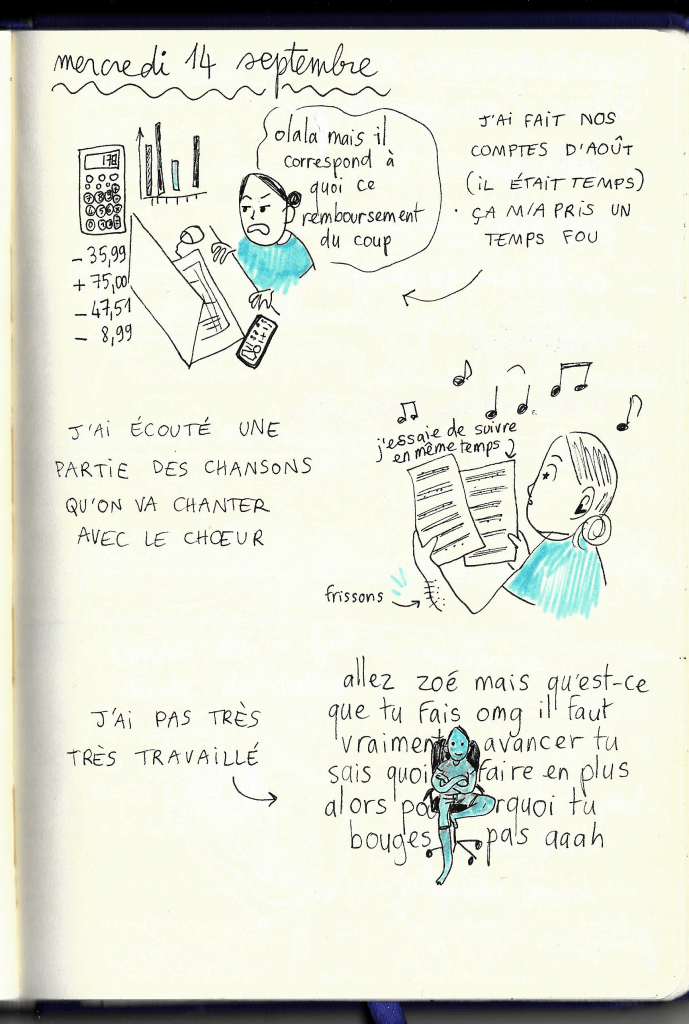 mercredi 14 septembre
178
olala mais il
correspond à
quoi ce
remboursement
du coup
J'AI FAIT NOS
COMPTES D'AOÛT
(IL ÉTAIT TEMPS)
ÇA M'A PRIS UN
TEMPS FOU
- 35,99
+ 75,00
- 47,51
- 8,99
J'AI ÉCOUTÉ UNE
PARTIE DES CHANSONS
QU'ON VA CHANTER
AVEC LE CHŒUR
j'essaie de suivre
en même temps
frissons
J'AI PAS TRÈS
TRÈS TRAVAILLÉ
allez zoé mais qu'est-ce
que tu fais omg il faut
vraiment avancer tu
sais quoi faire en plus
alors pourquoi tu
bouges pas aaah